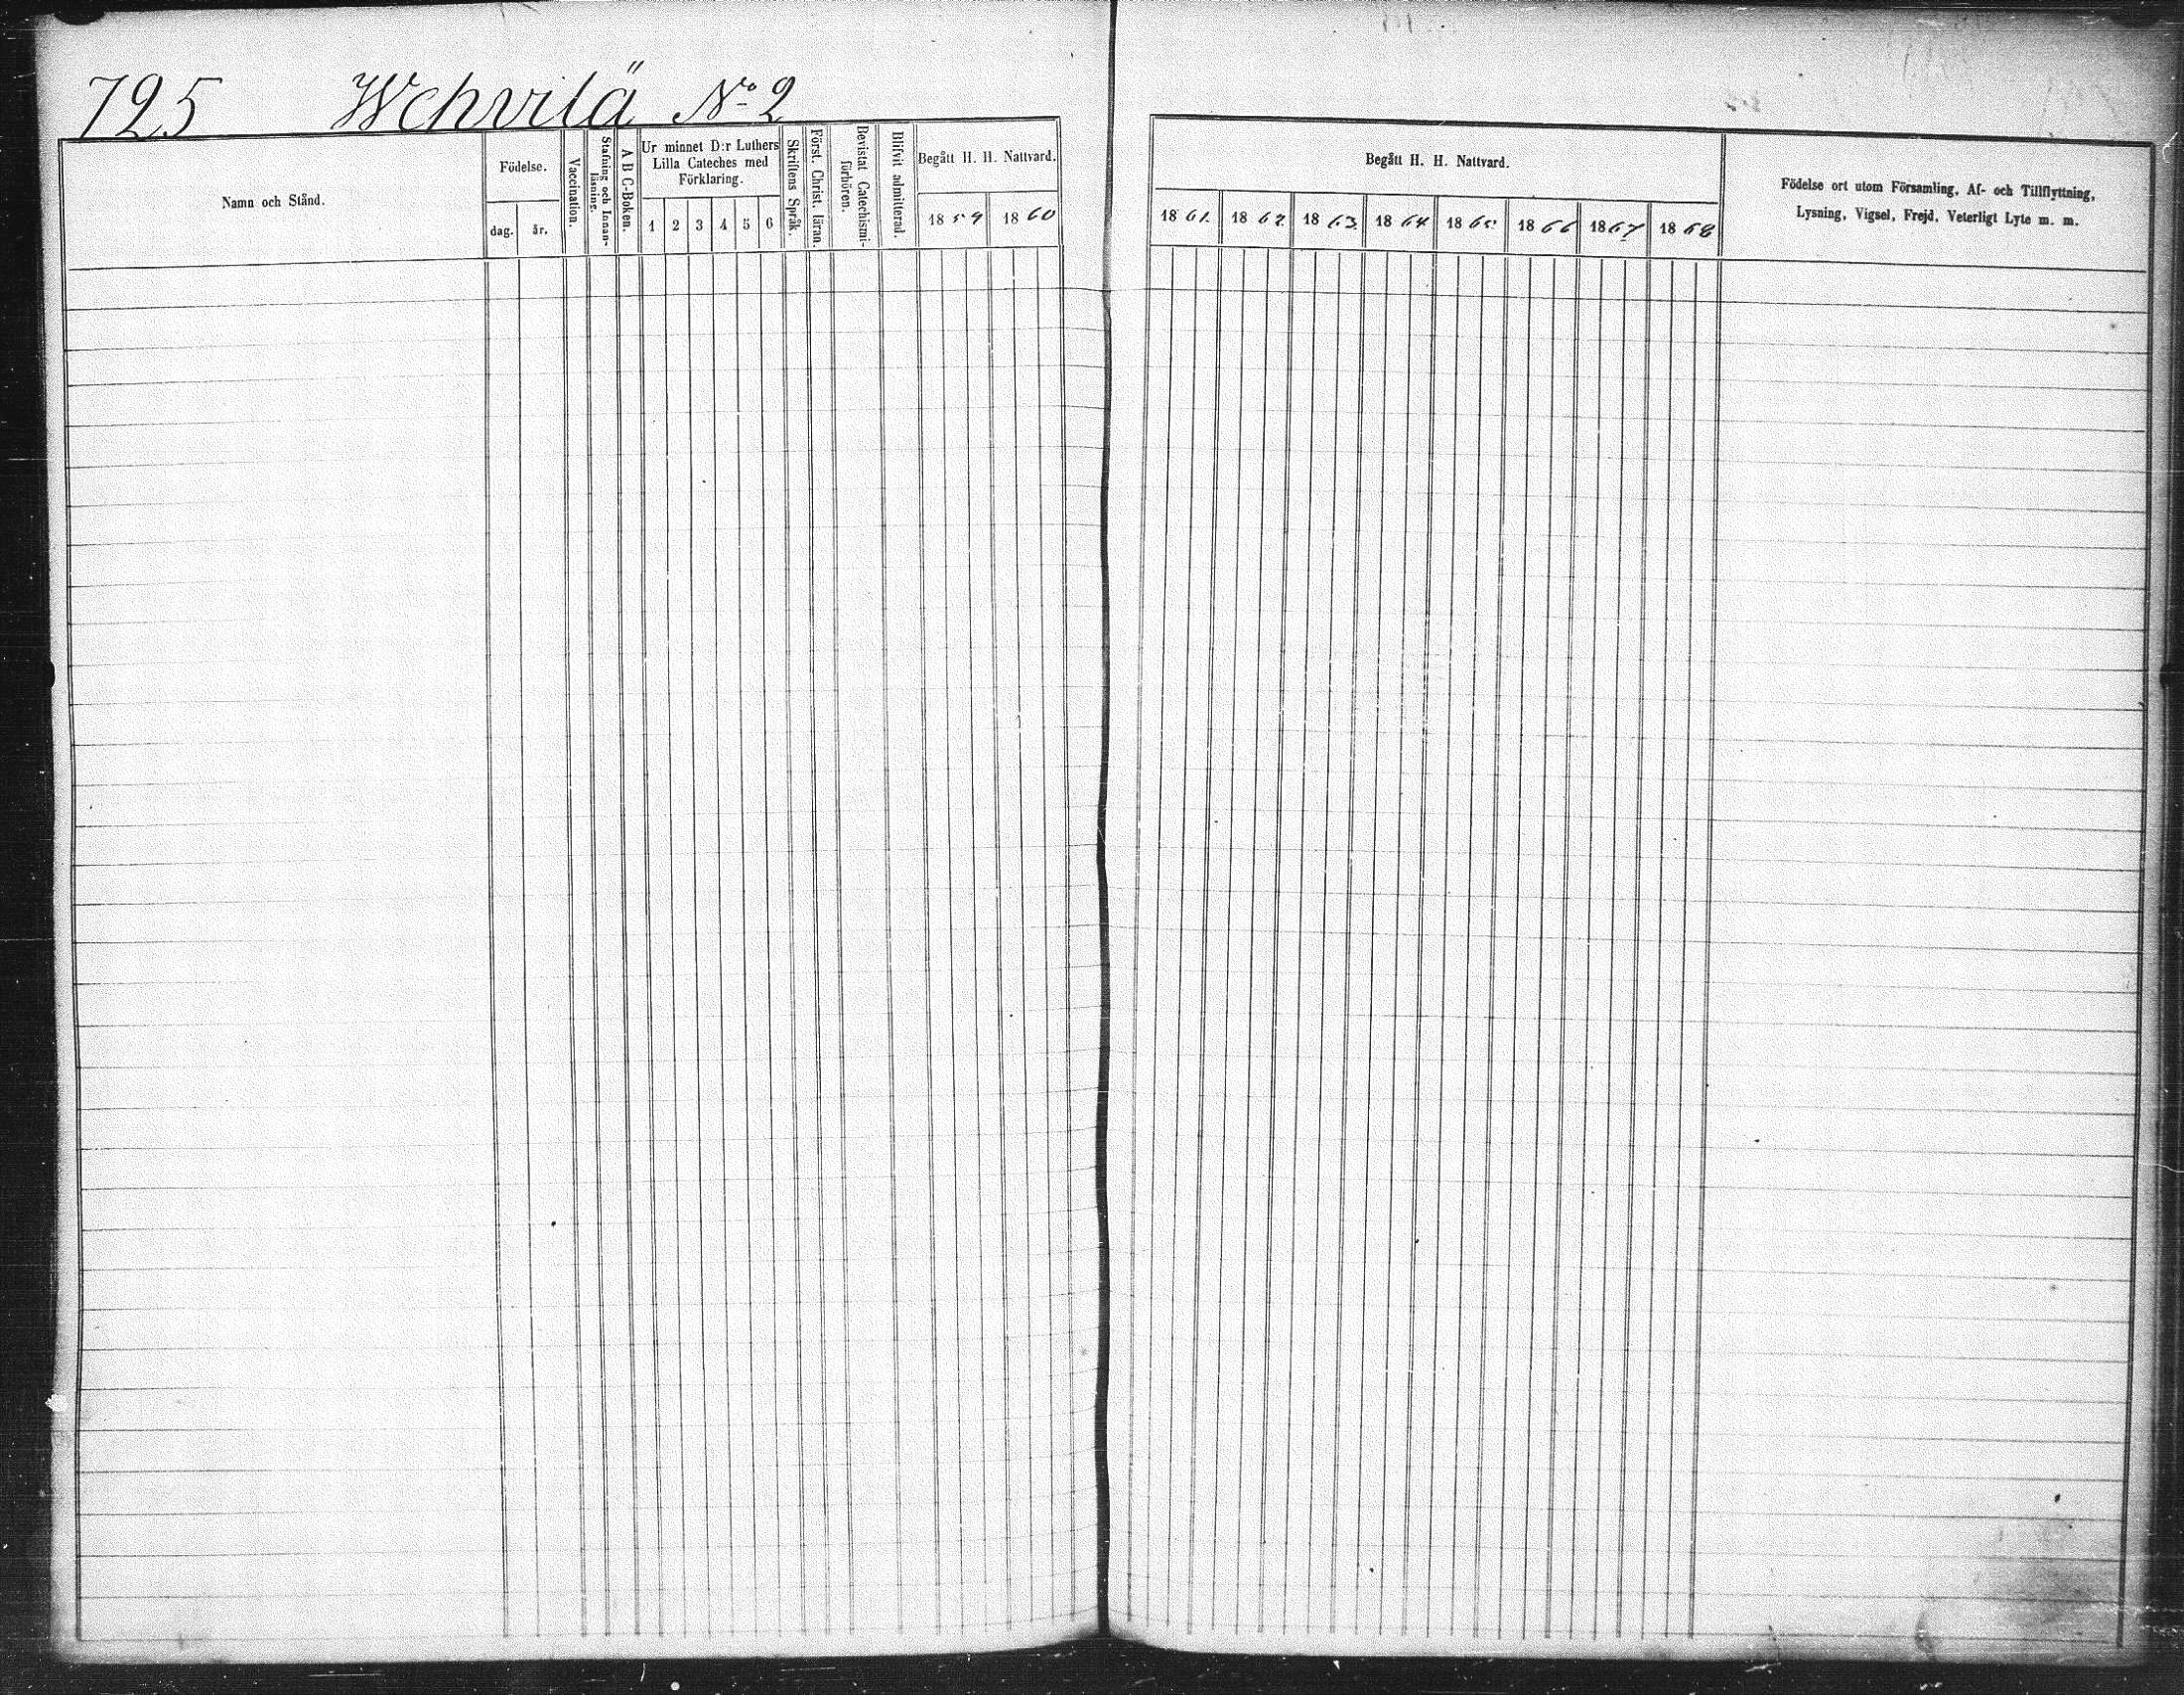 725 Wehvilä No 2
Namn och Stånd.
Födelse.
dag.
år.
Vaccination.
Stafning och Innan-
läsning.
A B C-Boken.
Ur minnet D:r Luthers
Lilla Cateches med
Förklaring.
1 2 3 4 5 6
Skriftens Språk.
Först. Christ. läran.
Bevistat Catechismi-
förhören.
Blifvit admitterad.
Begått H. H. Nattvard.
1859 1860
Begått H. H. Nattvard.
1861. 1862. 1863. 1864 1865. 1866 1867 1868
Födelse ort utom Församling, Af- och Tillflyttning,
Lysning, Vigsel, Frejd, Veterligt Lyte m. m.